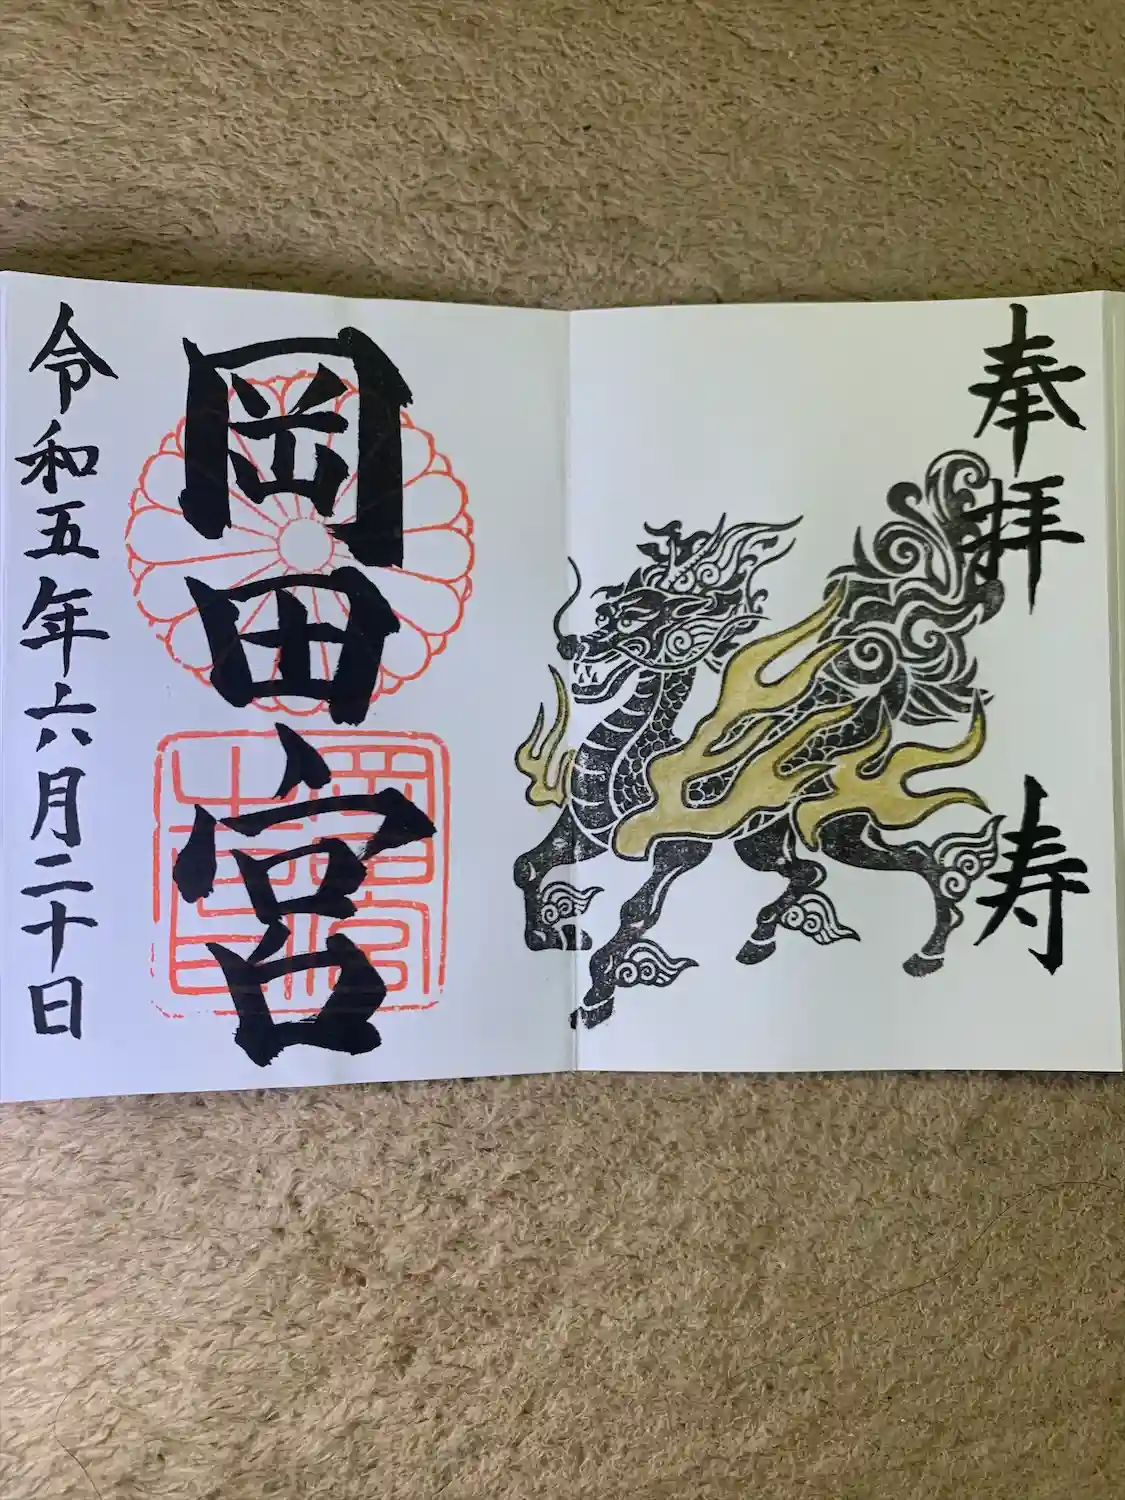 奉拝
寿
岡田宮
令和五年六月二十日